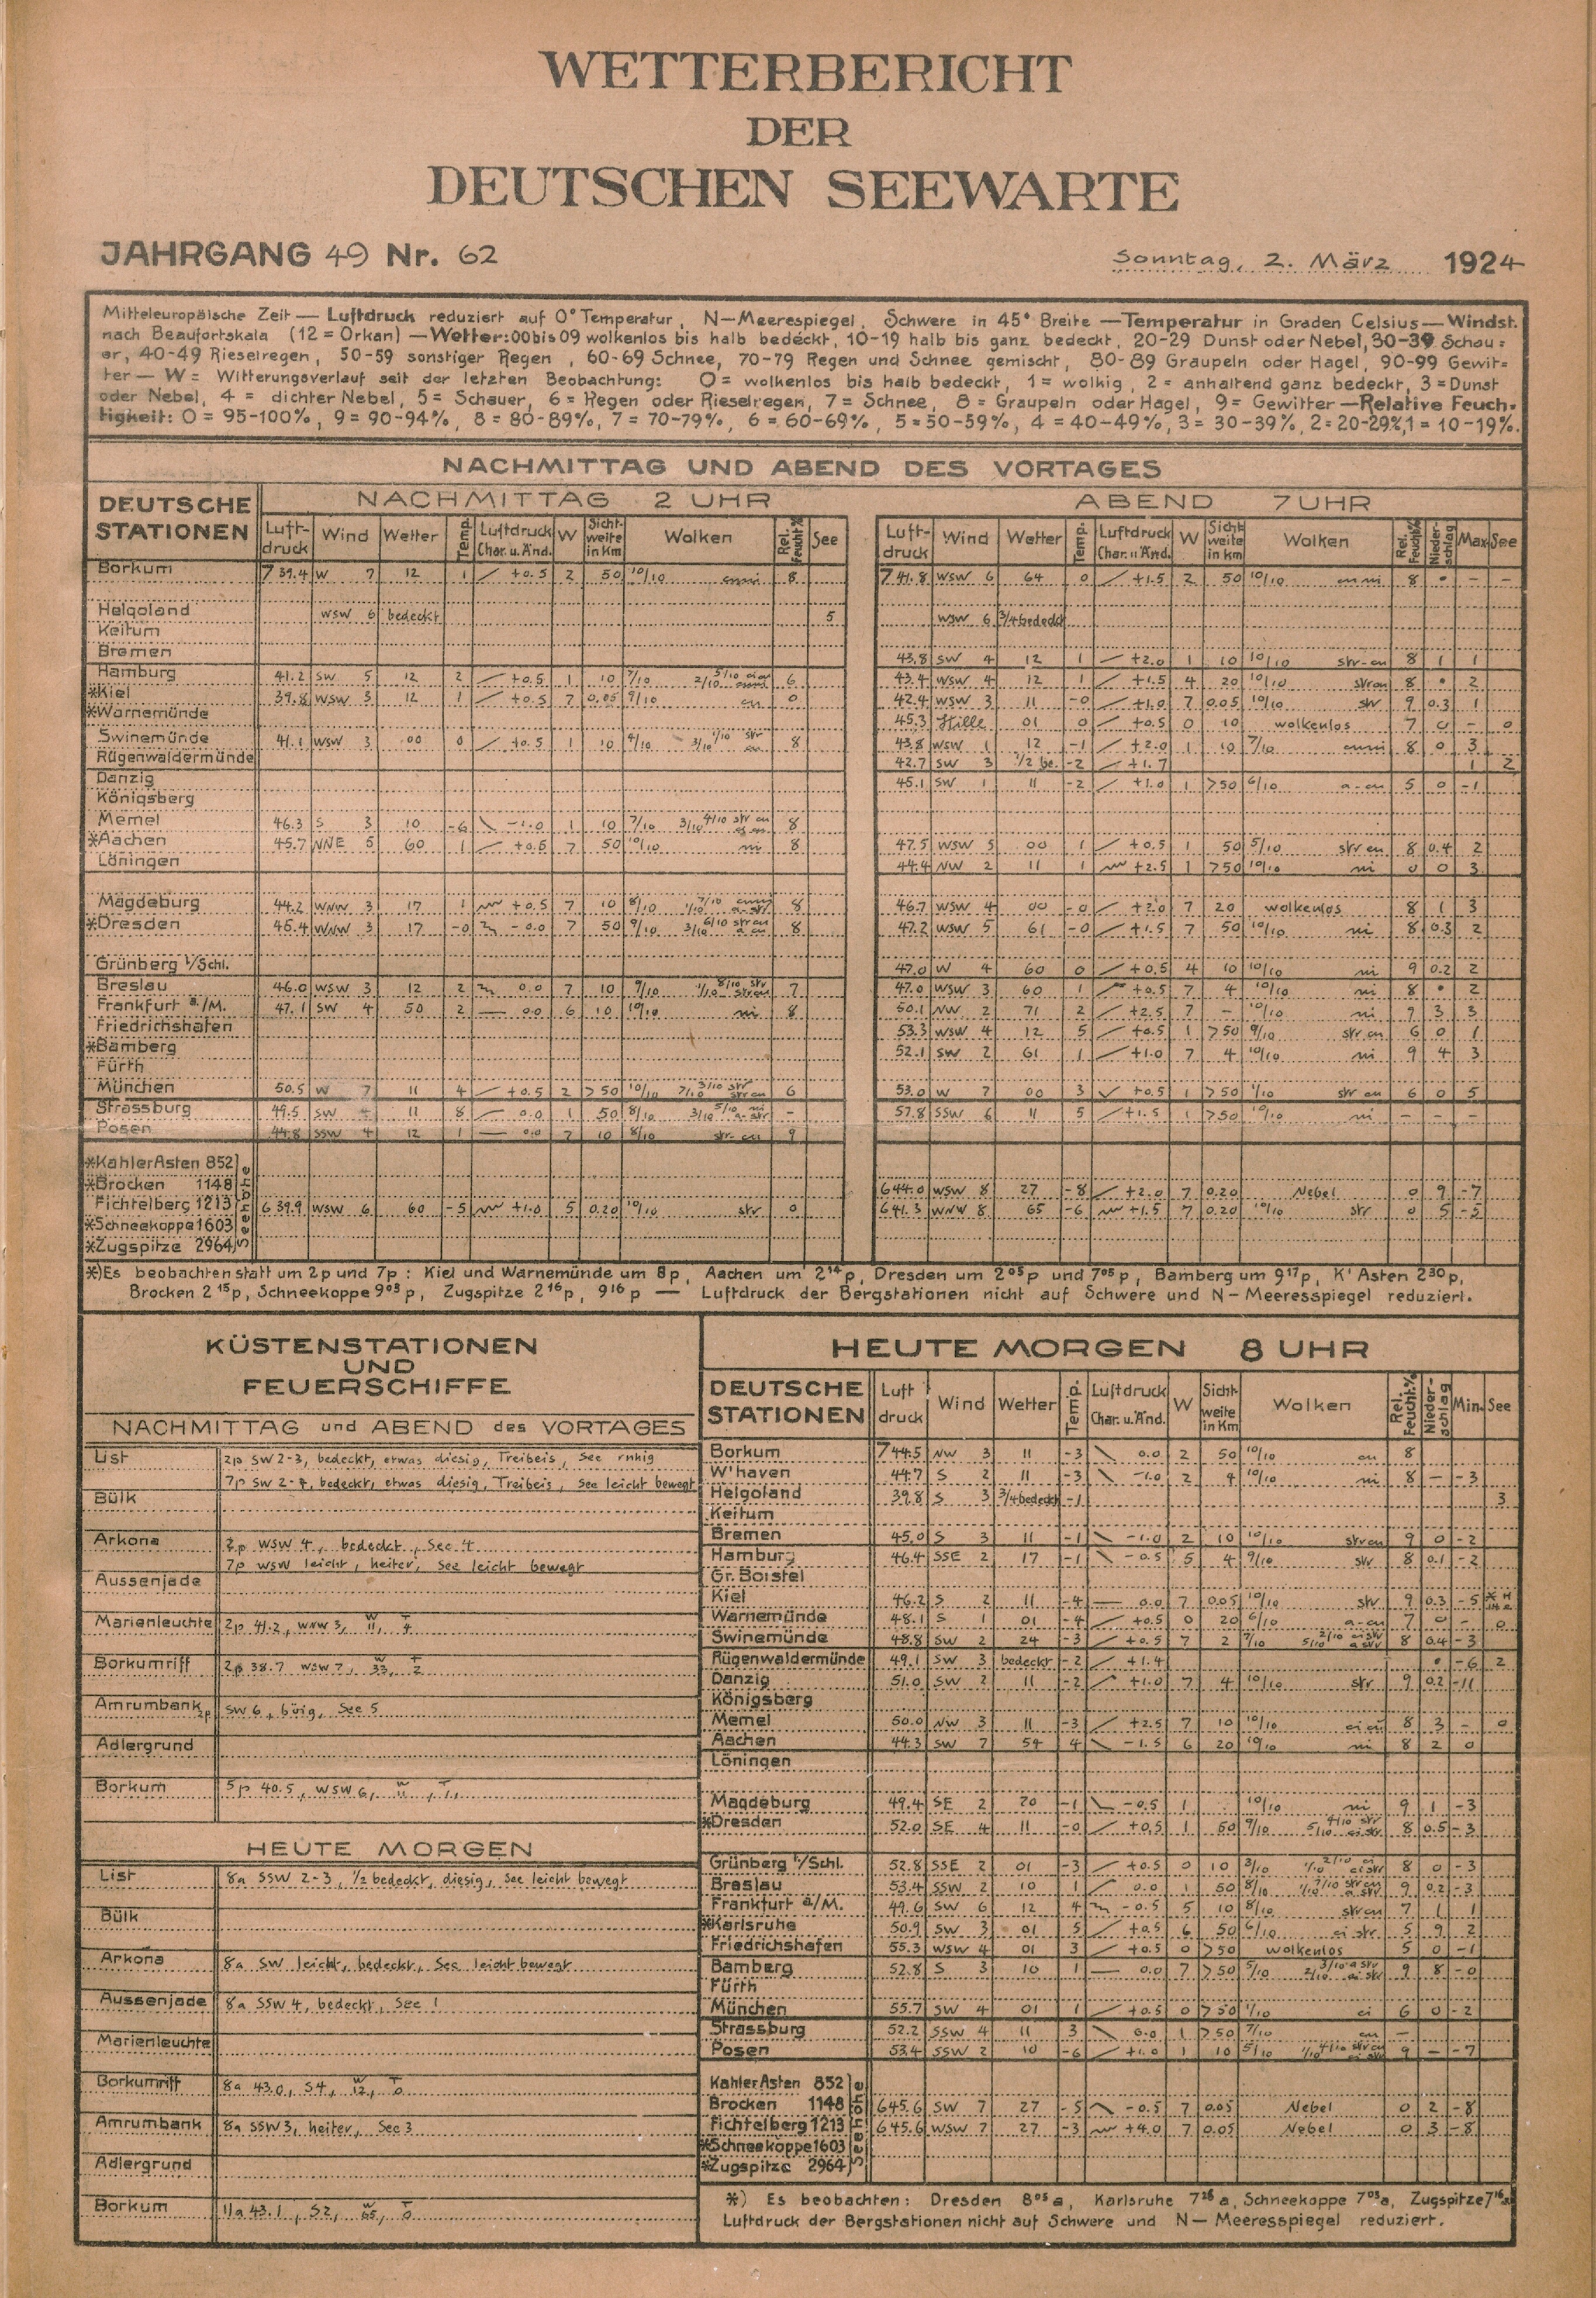 WETTERBERICHT
DER
DEUTSCHEN SEEWARTE
JAHRGANG 49 Nr. 62
Sonntag, 2. März 1924
Mitteleuropäische Zeit — Luftdruck reduziert auf 0° Temperatur, N—Meerespiegel, Schwere in 45° Breite — Temperatur in Graden Celsius — Windst.
nach Beaufortskala (12 = Orkan) — Wetter: 00 bis 09 wolkenlos bis halb bedeckt, 10-19 halb bis ganz bedeckt, 20-29 Dunst oder Nebel, 30-39 Schau=
er, 40-49 Rieselregen, 50-59 sonstiger Regen, 60-69 Schnee, 70-79 Regen und Schnee gemischt, 80-89 Graupeln oder Hagel, 90-99 Gewit=
ter — W = Witterungsverlauf seit der letzten Beobachtung: 0 = wolkenlos bis halb bedeckt, 1 = wolkig, 2 = anhaltend ganz bedeckt, 3 = Dunst
oder Nebel, 4 = dichter Nebel, 5 = Schauer, 6 = Regen oder Rieselregen, 7 = Schnee, 8 = Graupeln oder Hagel, 9 = Gewitter — Relative Feuch-
tigkeit: 0 = 95-100%, 9 = 90-94%, 8 = 80-89%, 7 = 70-79%, 6 = 60-69%, 5 = 50-59%, 4 = 40-49%, 3 = 30-39%, 2 = 20-29%, 1 = 10-19%.
NACHMITTAG UND ABEND DES VORTAGES
DEUTSCHE STATIONEN
NACHMITTAG 2 UHR
ABEND 7 UHR
Luft-druck Wind Wetter Temp. Luftdruck Char. u. Änd. W Sicht-weite in Km Wolken Rel. Feucht.% See
Luft-druck Wind Wetter Temp. Luftdruck Char. u. Änd. W Sicht-weite in km Wolken Rel. Feucht% Nieder-schlag Max See
Borkum 739.4 W 7 12 1 +0.5 2 50 10/10 8 741.8 WSW 6 64 0 +1.5 2 50 10/10 8 • – –
Helgoland WSW 6 bedeckt 5 WSW 6 3/4 bedeckt
Keitum
Bremen 43.8 SW 4 12 1 +2.0 1 10 10/10 str-cu 8 1 1
Hamburg 41.2 SW 5 12 2 +0.5 1 10 7/10 6 43.4 WSW 4 12 1 +1.5 4 20 10/10 strcu 8 • 2
*Kiel 39.8 WSW 3 12 1 +0.5 7 0.05 9/10 cu 0 42.4 WSW 3 11 -0 +1.0 7 0.05 10/10 str 9 0.3 1
*Warnemünde 45.3 Stille 01 0 +0.5 0 10 wolkenlos 7 0 – 0
Swinemünde 41.1 WSW 3 00 0 +0.5 1 10 4/10 8 43.8 WSW 1 12 -1 +2.0 1 10 7/10 8 0 3
Rügenwaldermünde 42.7 SW 3 1/2 be. -2 +1.7 1 2
Danzig 45.1 SW 1 11 -2 +1.0 1 >50 6/10 a-cu 5 0 -1
Königsberg
Memel 46.3 S 3 10 -6 -1.0 1 10 7/10 8
*Aachen 45.7 NNE 5 60 1 +0.5 7 50 10/10 ni 8 47.5 WSW 5 00 1 +0.5 1 50 5/10 str cu 8 0.4 2
Löningen 44.4 NW 2 11 1 +2.5 1 >50 10/10 ni 0 0 3
Magdeburg 44.2 WNW 3 17 1 +0.5 7 10 8/10 8 46.7 WSW 4 00 -0 +2.0 7 20 wolkenlos 8 1 3
*Dresden 45.4 WNW 3 17 -0 -0.0 7 50 9/10 8 47.2 WSW 5 61 -0 +1.5 7 50 10/10 ni 8 0.3 2
Grünberg i/Schl. 47.0 W 4 60 0 +0.5 4 10 10/10 ni 9 0.2 2
Breslau 46.0 WSW 3 12 2 0.0 7 10 9/10 7 47.0 WSW 3 60 1 +0.5 7 4 10/10 ni 8 • 2
Frankfurt a./M. 47.1 SW 4 50 2 0.0 6 10 10/10 ni 8 50.1 NW 2 71 2 +2.5 7 – 10/10 ni 9 3 3
Friedrichshafen 53.3 WSW 4 12 5 +0.5 1 >50 9/10 str cu 6 0 1
*Bamberg 52.1 SW 2 61 1 +1.0 7 4 10/10 ni 9 4 3
Fürth
München 50.5 W 7 11 4 +0.5 2 >50 10/10 6 53.0 W 7 00 3 +0.5 1 >50 1/10 str cu 6 0 5
Strassburg 49.5 SW 4 11 8 0.0 1 50 8/10 – 57.8 SSW 6 11 5 +1.5 1 >50 10/10 ni – – –
Posen 44.8 SSW 4 12 1 0.0 7 10 8/10 str-cu 9
Seehöhe
*Kahler Asten 852
*Brocken 1148 644.0 WSW 8 27 -8 +2.0 7 0.20 Nebel 0 9 -7
Fichtelberg 1213 639.9 WSW 6 60 -5 +1.0 5 0.20 10/10 str 0 641.3 WNW 8 65 -6 +1.5 7 0.20 10/10 str 0 5 -5
*Schneekoppe 1603
*Zugspitze 2964
*) Es beobachten statt um 2p und 7p: Kiel und Warnemünde um 8p, Aachen um 2¹⁴p, Dresden um 2⁰⁵p und 7⁰⁵p, Bamberg um 9¹⁷p, K' Asten 2³⁰p,
Brocken 2¹⁵p, Schneekoppe 9⁰³p, Zugspitze 2¹⁶p, 9¹⁶p — Luftdruck der Bergstationen nicht auf Schwere und N—Meeresspiegel reduziert.
KÜSTENSTATIONEN
UND
FEUERSCHIFFE
NACHMITTAG und ABEND des VORTAGES
List 2p SW 2-3, bedeckt, etwas diesig, Treibeis, See ruhig
7p SW 2-4, bedeckt, etwas diesig, Treibeis, See leicht bewegt
Bülk
Arkona 2p WSW 4, bedeckt, See 4
7p WSW leicht, heiter, See leicht bewegt
Aussenjade
Marienleuchte 2p 41.2, WNW 3, W 11, T 4
Borkumriff 2p 38.7 WSW 7, W 33, T 2
Amrumbank 2p SW 6, böig, See 5
Adlergrund
Borkum 5p 40.5, WSW 6, W 11, T 1
HEUTE MORGEN
List 8a SSW 2-3, 1/2 bedeckt, diesig, See leicht bewegt
Bülk
Arkona 8a SW leicht, bedeckt, See leicht bewegt
Aussenjade 8a SSW 4, bedeckt, See 1
Marienleuchte
Borkumriff 8a 43.0, S4, W 12, T 0
Amrumbank 8a SSW 3, heiter, See 3
Adlergrund
Borkum 11a 43.1, S2, W 65, T 0
HEUTE MORGEN 8 UHR
DEUTSCHE STATIONEN Luft druck Wind Wetter Temp. Luftdruck Char. u. Änd. W Sicht-weite in Km Wolken Rel. Feucht.% Nieder-schlag Min. See
Borkum 744.5 NW 3 11 -3 0.0 2 50 10/10 cu 8
W'haven 44.7 S 2 11 -3 -1.0 2 4 10/10 ni 8 – -3
Helgoland 39.8 S 3 3/4 bedeckt -1 3
Keitum
Bremen 45.0 S 3 11 -1 -1.0 2 10 10/10 strcu 9 0 -2
Hamburg 46.4 SSE 2 17 -1 -0.5 5 4 9/10 str 8 0.1 -2
Gr. Borstel
Kiel 46.2 S 2 11 -4 0.0 7 0.05 10/10 str 9 0.3 -5
Warnemünde 48.1 S 1 01 -4 +0.5 0 20 6/10 a-cu 7 0 – 0
Swinemünde 48.8 SW 2 24 -3 +0.5 7 2 7/10 8 0.4 -3
Rügenwaldermünde 49.1 SW 3 bedeckt -2 +1.4 • -6 2
Danzig 51.0 SW 2 11 -2 +1.0 7 4 10/10 str 9 0.2 -11
Königsberg
Memel 50.0 NW 3 11 -3 +2.5 7 10 10/10 8 3 – 0
Aachen 44.3 SW 7 54 4 -1.5 6 20 10/10 ni 8 2 0
Löningen
Magdeburg 49.4 SE 2 20 -1 -0.5 1 10/10 ni 9 1 -3
*Dresden 52.0 SE 4 11 -0 +0.5 1 50 9/10 8 0.5 -3
Grünberg i/Schl. 52.8 SSE 2 01 -3 +0.5 0 10 3/10 8 0 -3
Breslau 53.4 SSW 2 10 1 0.0 1 50 8/10 9 0.2 -3
Frankfurt a/M. 49.6 SW 6 12 4 -0.5 5 10 8/10 strcu 7 1 1
*Karlsruhe 50.9 SW 3 01 5 +0.5 6 50 6/10 ci str. 5 9 2
Friedrichshafen 55.3 WSW 4 01 3 +0.5 0 >50 wolkenlos 5 0 -1
Bamberg 52.8 S 3 10 1 0.0 7 >50 5/10 9 8 -0
Fürth
München 55.7 SW 4 01 1 +0.5 0 >50 1/10 ci 6 0 -2
Strassburg 52.2 SSW 4 11 3 0.0 1 >50 7/10 cu –
Posen 53.4 SSW 2 10 -6 +1.0 1 10 5/10 9 – -7
Seehöhe
Kahler Asten 852
Brocken 1148 645.6 SW 7 27 -5 -0.5 7 0.05 Nebel 0 2 -8
Fichtelberg 1213 645.6 WSW 7 27 -3 +4.0 7 0.05 Nebel 0 3 -8
*Schneekoppe 1603
*Zugspitze 2964
*) Es beobachten: Dresden 8⁰⁵a, Karlsruhe 7²⁶a, Schneekoppe 7⁰³a, Zugspitze 7¹⁶a
Luftdruck der Bergstationen nicht auf Schwere und N—Meeresspiegel reduziert.